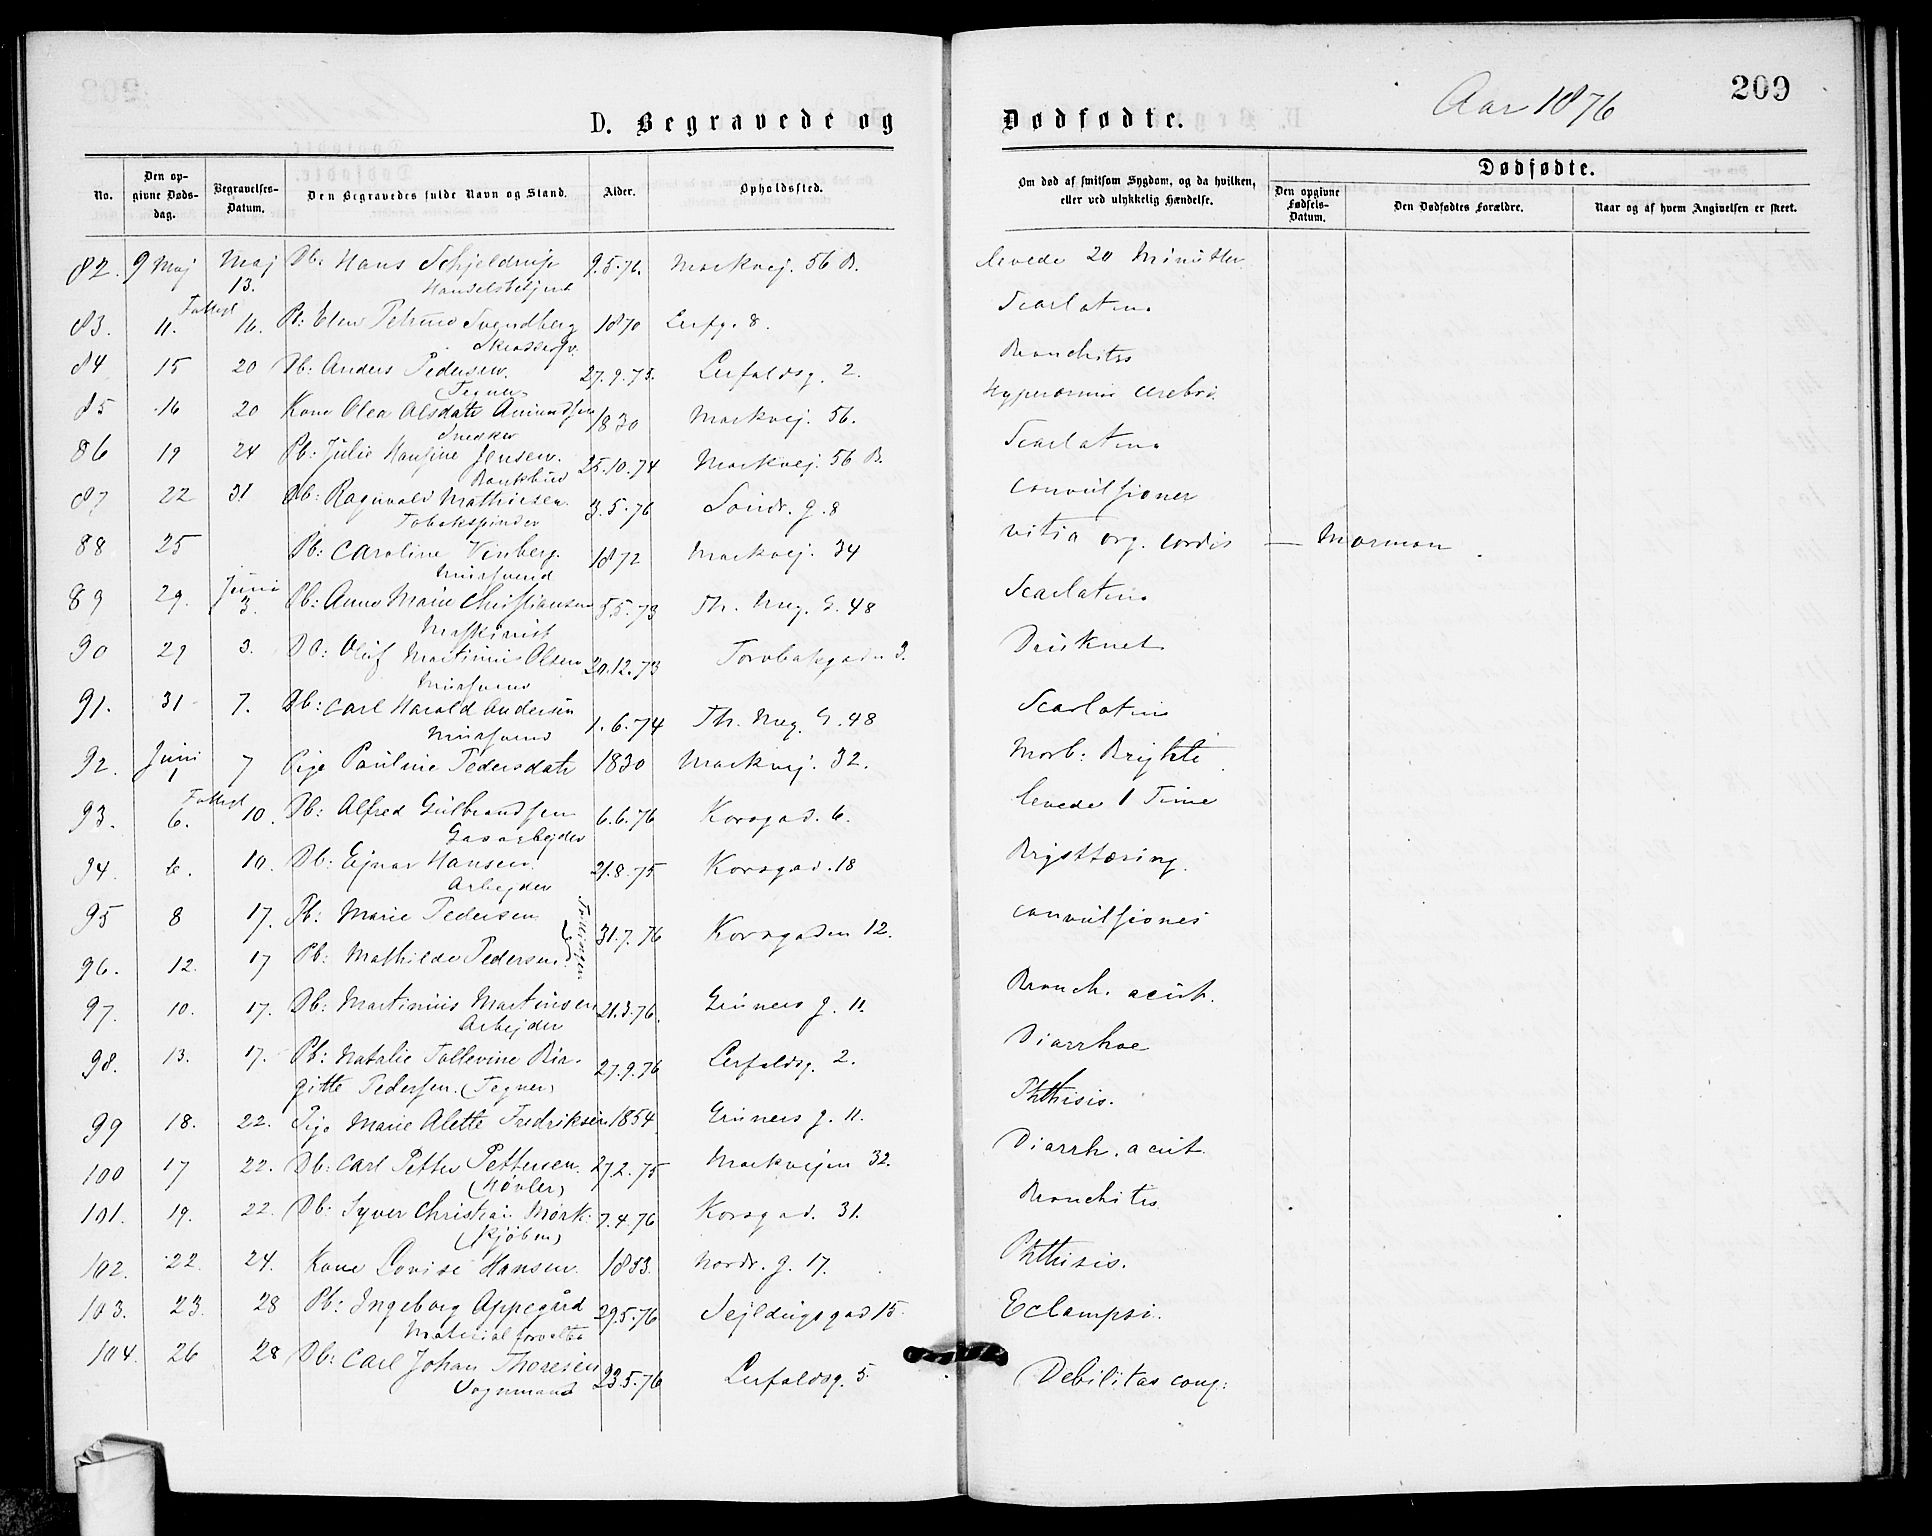 209
Aar 1876
D. Begravede og Dødfødte.
No. Den opgivne Dødsdag. Begravelses-Datum. Den Begravedes fulde Navn og Stand. Alder. Opholdssted. Om død af smitsom Sygdom, og da hvilken, eller ved ulykkelig Hændelse. Dødfødte. Den opgivne Fødsels-Datum. Den Dødfødtes Forældre. Naar og af hvem Angivelsen er skeet.
82. 9 Maj Maj 13. Db: Hans Schjeldrup 9.5.76. Markvej. 56 B. levede 20 Minutter
Handelsbetjent
83. 11. Fattigl 16. Pb: Elen Petrine Svendberg 1870 Lerfg. 8. Scarlatina
84 15 20 Db: Anders Pedersen. 27.9.75. Lerfaldsg. 2. Bronchites
Tegner
85 16 20 Kone Olea Olsdatr Amundsen 1830 Markvej. 56. Hyperæmia cerebri
Snedker
86 19 24 Pb: Julie Hansine Jensen. 25.10.74 Markvej. 56 B. Scarlatina
Bankbud
87 22 31 Db: Ragnvald Mathiesen 3.5.76 Søndr. g. 8 convulsioner
Tobakspinder
88 25 Pb: Caroline Vinberg. 1872 Markvej. 34 vitia org. cordis — Mormon.
Mursvend
89 29. Juni 3. Pb: Anna Marie Christiansen 5.5.73 Th. Mey. G. 48 Scarlatina
Maskinist
90 29 3. Db: Oluf Martinius Olsen 20.12.73 Torvbakgaden 3. Druknet
Mursvend
91. 31 7. Db: Carl Harald Andersen 1.6.74 Th. Mey. G. 48 Scarlatina
Mursvend
92. Juni 1 7 Pige Pauline Pedersdatr 1830 Markvej. 32. Morb: Brighti
93. 6. Fattigl 10. Db: Alfred Gulbrandsen 6.6.76 Korsgad. 6. levede 1 Time
Gasarbejder
94. 6. 10. Db: Ejnar Hansen. 21.8.75 Korsgad. 18 Brysttæring.
Arbejder
95 8 17. Pb: Marie Pedersen } Tvillinger 31.7.76 Korsgaden 12. convulsiones
96. 12. 17 Pb: Mathilde Pedersen
97. 10. 17. Db: Martinius Martinsen 21.3.76. Grüners g. 11. Bronch. acut.
Arbejder
98. 13. 17. Pb: Natalie Tallevine Bir- 27.9.76 Lerfaldsg. 2. Diarrhoe
gitte Pedersen. (Tegner)
99 18. 22. Pige Marie Alette Fredriksen 1854 Grüners g. 11. Phthisis.
100 17 22. Db: Carl Petter Pettersen. 27.2.75 Markvejen 32. Diarrh. acut.
(Høvler)
101. 19. 22. Db: Syver Christian Mørk. 7.4.76 Korsgad. 31. Bronchites
(Kjøbm)
102. 22. 24. Kone Lovise Hansen. 1853. Nordr. g. 17. Phthisis.
103. 23. 28 Pb: Ingeborg Appegård 29.5.76 Sejldugsgad 15. Eclampsi.
Materialforvalter
104. 26 28 Db: Carl Johan Thoresen 23.5.76 Lerfaldsg. 5. Debilitas cong:
Vognmand